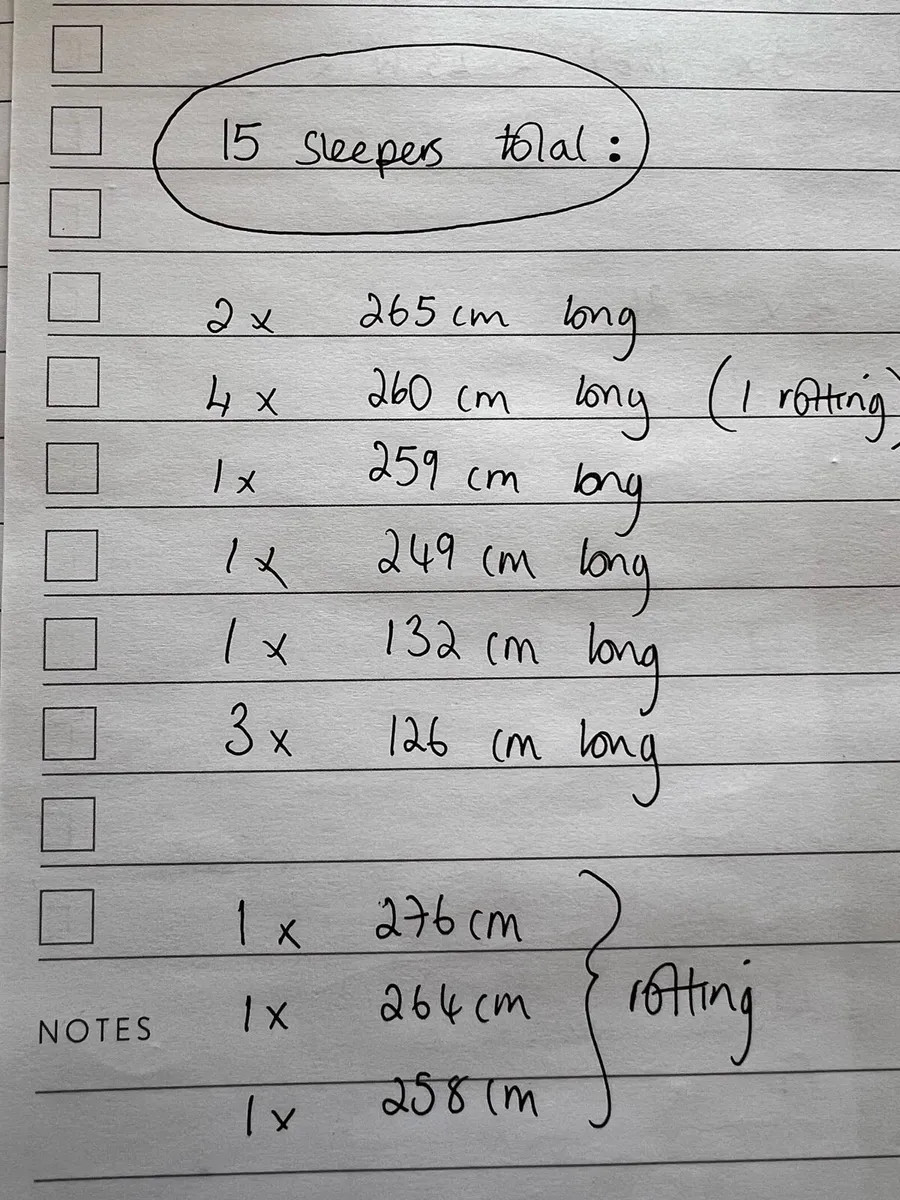 15 sleepers total:
2x 265 cm long
4x 260 cm long (1 rotting)
1x 259 cm long
1x 249 cm long
1x 132 cm long
3x 126 cm long
1x 276 cm
1x 264 cm
rotting
NOTES
1x 258 cm